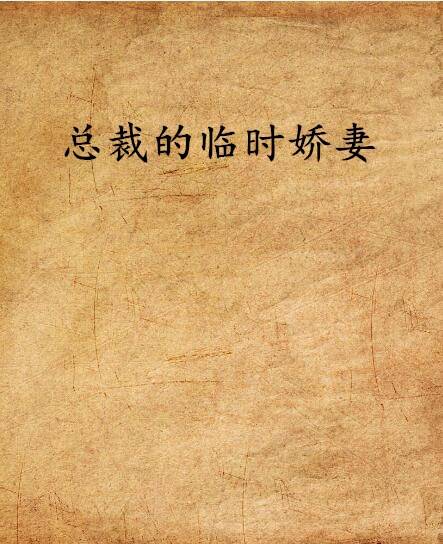 总裁的临时娇妻